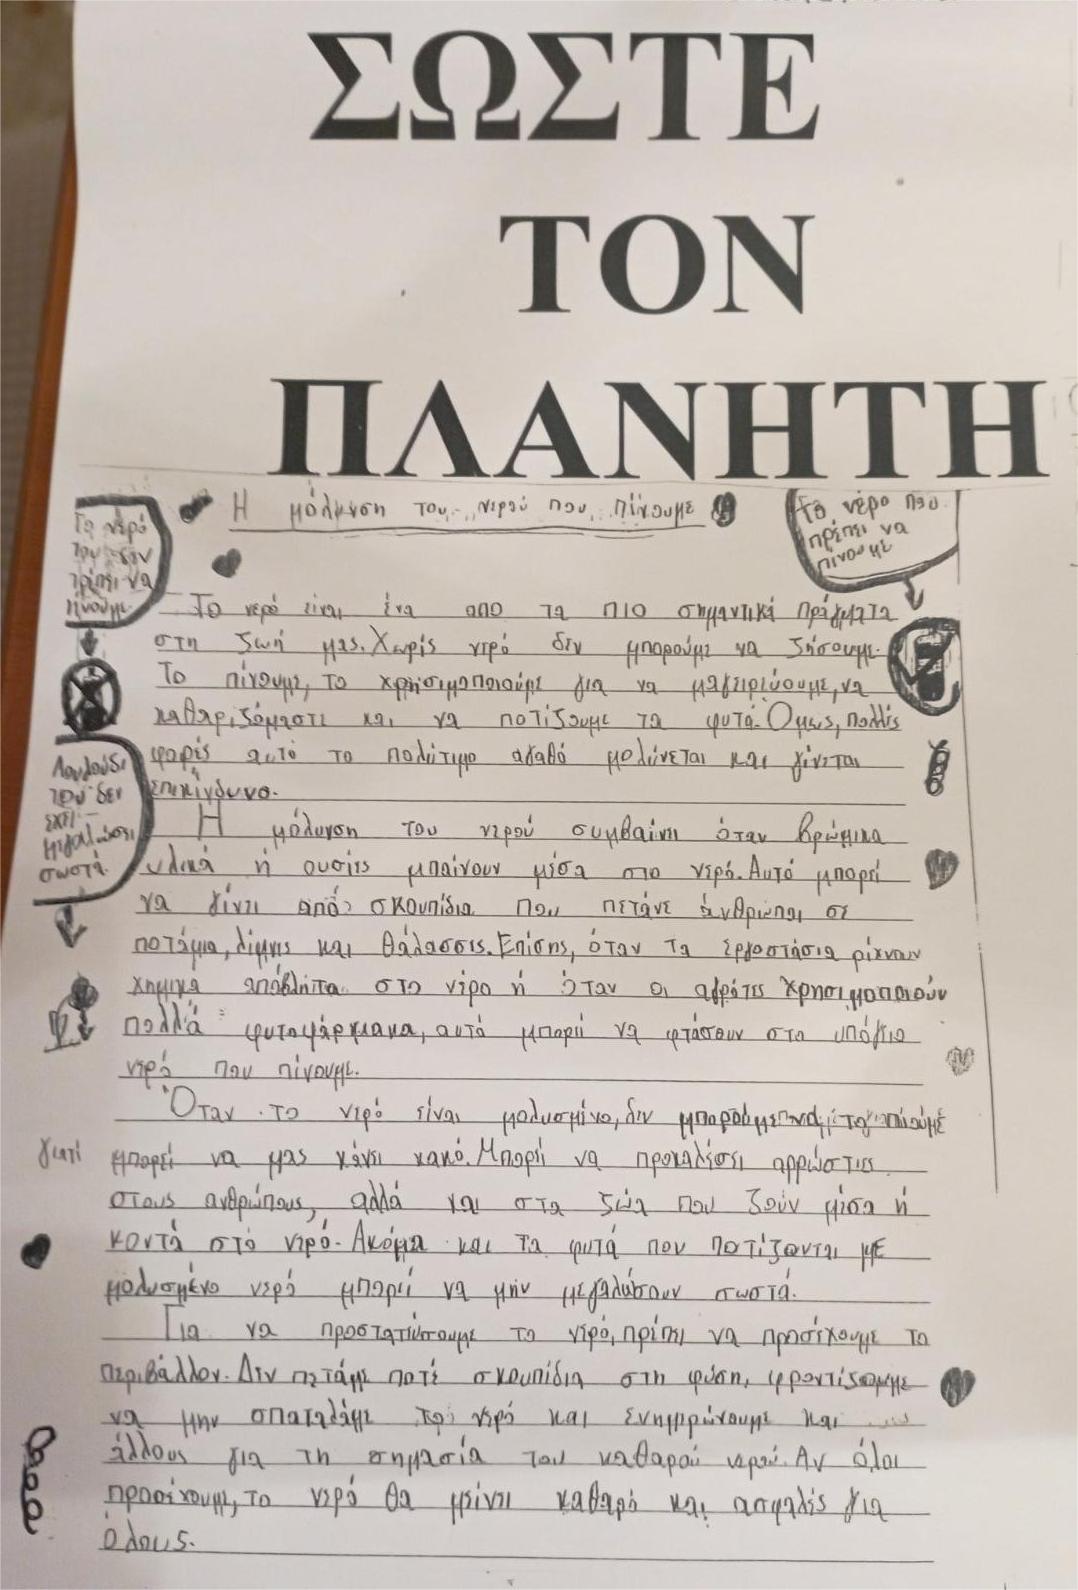 ΣΩΣΤΕ
ΤΟΝ
ΠΛΑΝΗΤΗ
Η μόλυνση του νερού που πίνουμε
Το νερό
που δεν
πρέπει να
πίνουμε
Το νέρο που
πρέπει να
πίνουμε
Το νερό είναι ένα απο τα πιο σημαντικά πράγματα
στη ζωή μας. Χωρίς νερό δεν μπορούμε να ζήσουμε.
Το πίνουμε, το χρησιμοποιούμε για να μαγειρεύουμε, να
καθαριζόμαστε και να ποτίζουμε τα φυτά. Όμως, πολλές
φορές αυτό το πολύτιμο αγαθό μολύνεται και γίνεται
επικίνδυνο.
Λουλούδι
που δεν
έχει
μεγαλώσει
σωστά.
Η μόλυνση του νερού συμβαίνει όταν βρώμικα
υλικά ή ουσίες μπαίνουν μέσα στο νερό. Αυτό μπορεί
να γίνει από σκουπίδια που πετάνε άνθρωποι σε
ποτάμια, λίμνες και θάλασσες. Επίσης, όταν τα εργοστάσια ρίχνουν
χημικα απόβλητα στο νέρο ή όταν οι αγρότες χρησιμοποιούν
πολλά φυτοφάρμακα, αυτά μπορεί να φτάσουν στο υπόγειο
νερό που πίνουμε.
Όταν το νερό είναι μολυσμένο, δεν μπορούμε να το πιούμε
γιατί μπορεί να μας κάνει κακό. Μπορεί να προκαλέσει αρρώστιες
στους ανθρώπους, αλλά και στα ζώα που ζούν μέσα ή
κοντά στό νερό. Ακόμα και τα φυτά που ποτίζονται με
μολυσμένο νερό μπορεί να μην μεγαλώσουν σωστά.
Για να προστατεύσουμε το νερό, πρέπει να προσέχουμε το
περιβάλλον. Δεν πετάμε ποτέ σκουπίδια στη φύση, φροντίζουμε
να μην σπαταλάμε το νερό και ενημερώνουμε και
άλλους για τη σημασία του καθαρού νερού. Αν όλοι
προσέχουμε, το νερό θα μείνει καθαρό και ασφαλές για
όλους.